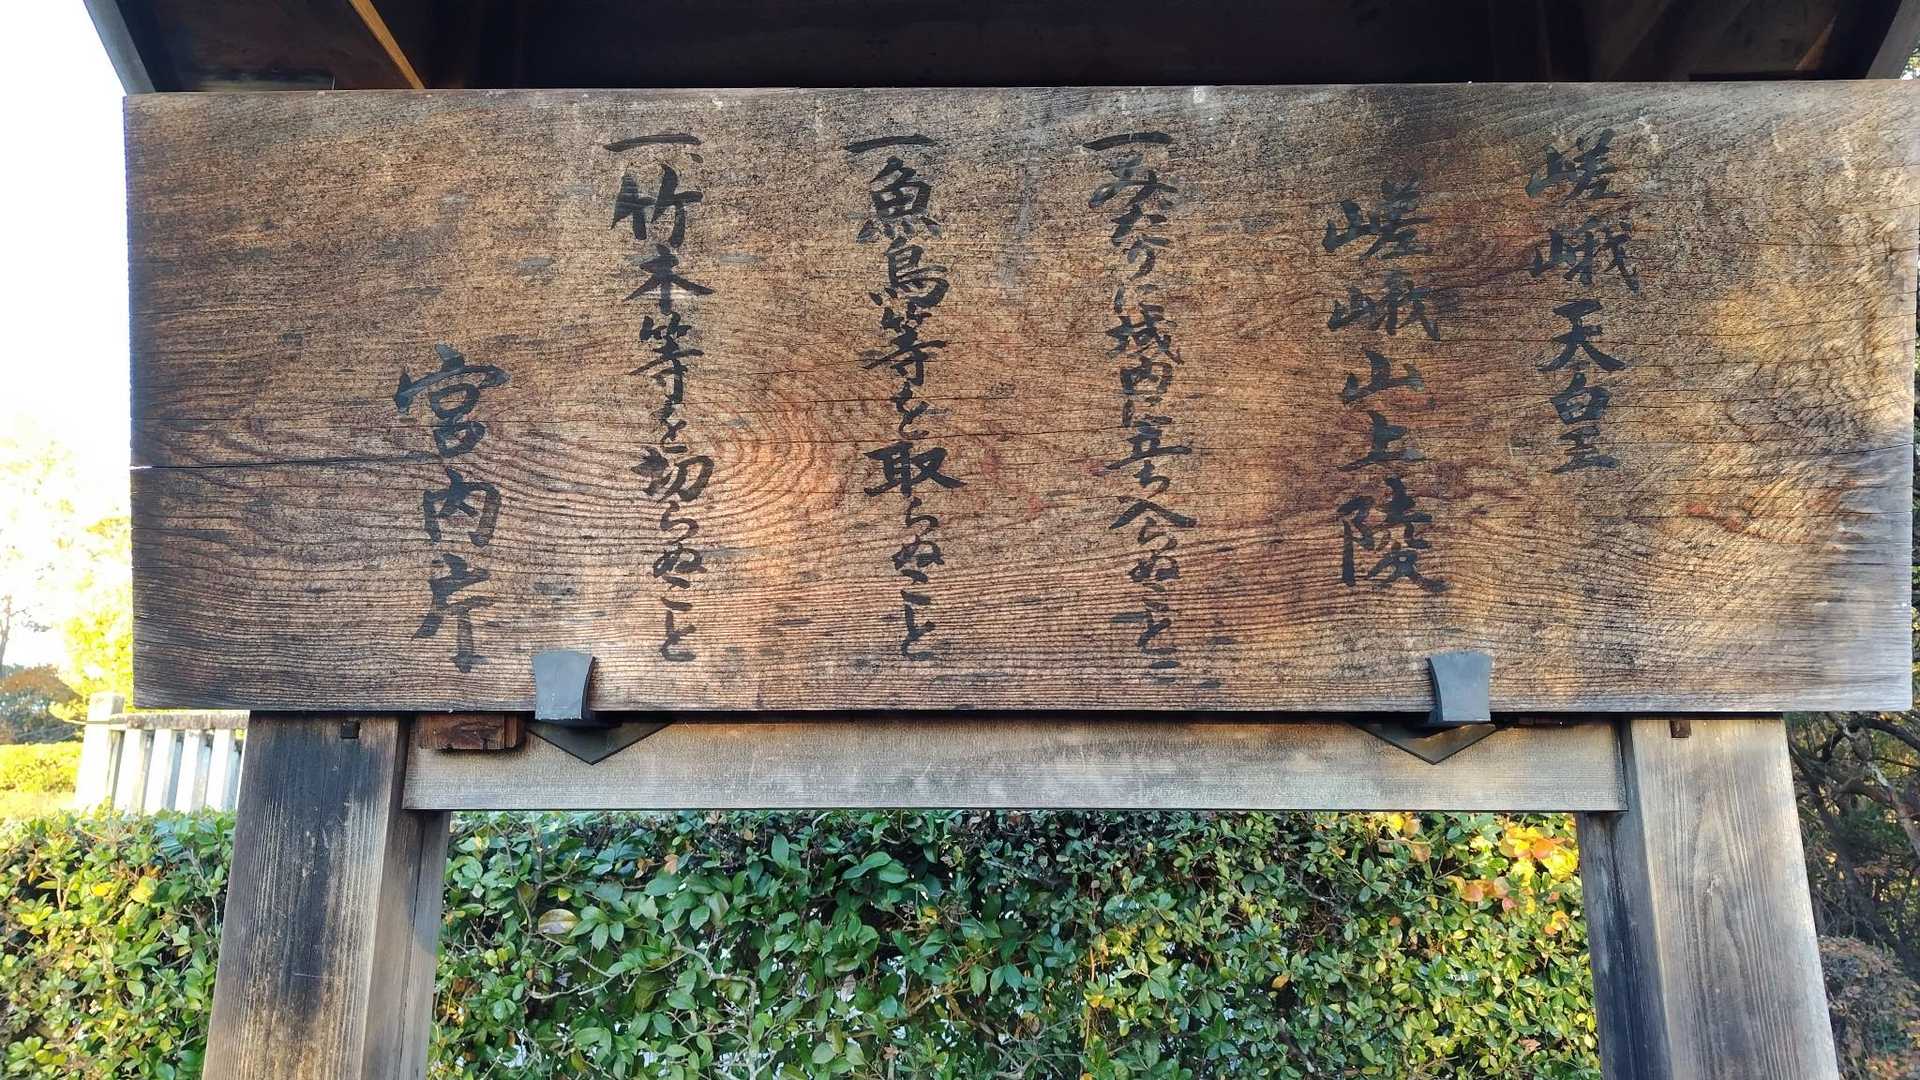 嵯峨天皇
嵯峨山上陵
一、みだりに域内に立ち入らぬこと
一、魚鳥等を取らぬこと
一、竹木等を切らぬこと
宮内庁